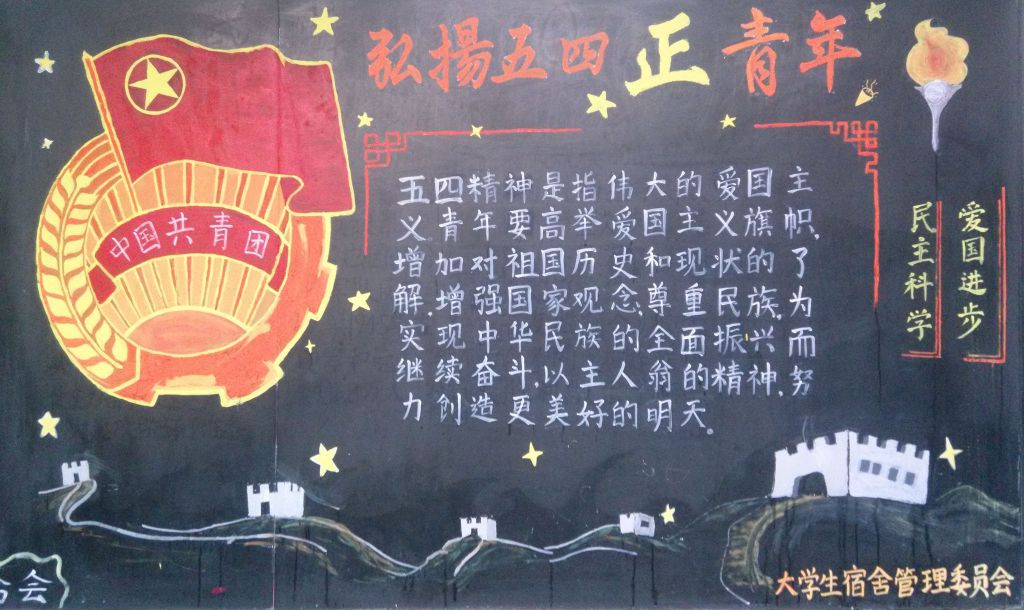 弘揚五四正青年
中国共青团
五四精神是指伟大的爱国主
义。青年要高举爱国主义旗帜,
增加对祖国历史和现状的了
解,增强国家观念,尊重民族,为
实现中华民族的全面振兴而
继续奋斗,以主人翁的精神,努
力创造更美好的明天。
爱国进步
民主科学
会
大学生宿舍管理委员会